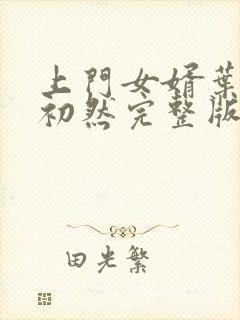 上門女婿葉
初然完整版
田光繁